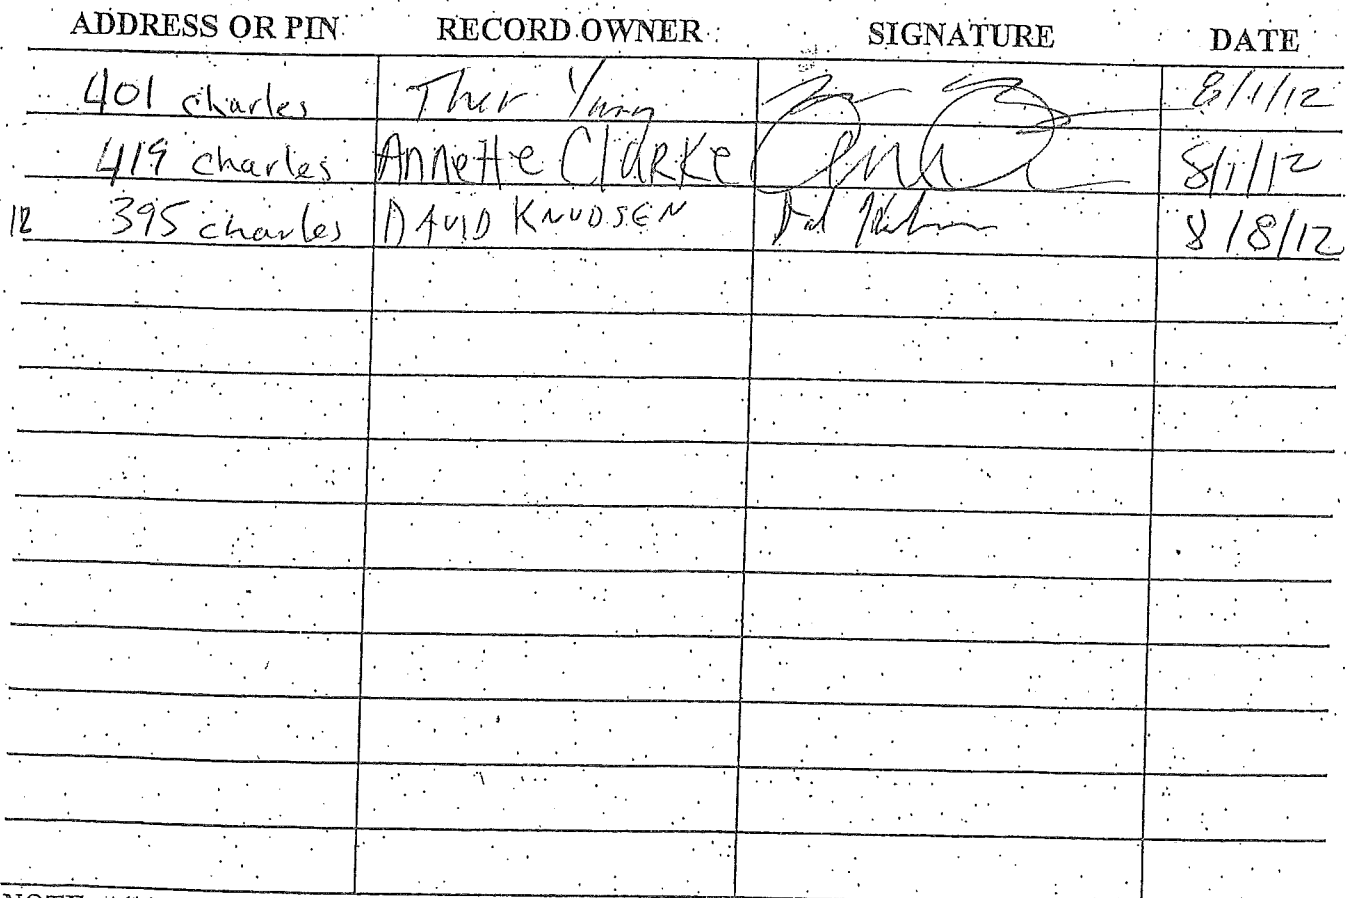 ADDRESS OR PIN RECORD OWNER SIGNATURE DATE
401 charles 8/1/12
419 charles Annette Clarke 8/1/12
12 395 charles DAVID KNUDSEN 8/8/12